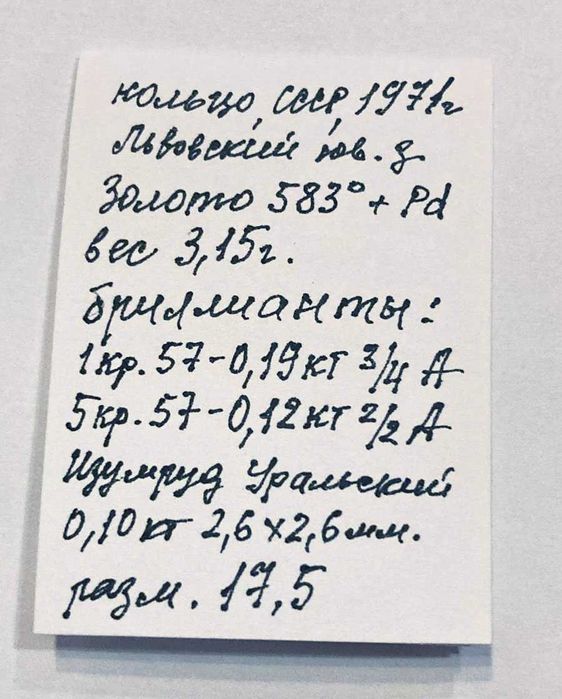 кольцо, СССР, 1971г
Львовский юв. з.
Золото 583° + Pd
вес 3,15г.
бриллианты:
1кр. 57-0,19кт 3/4 А
5кр. 57-0,12кт 2/2 А
Изумруд Уральский
0,10кт 2,6х2,6мм.
разм. 17,5